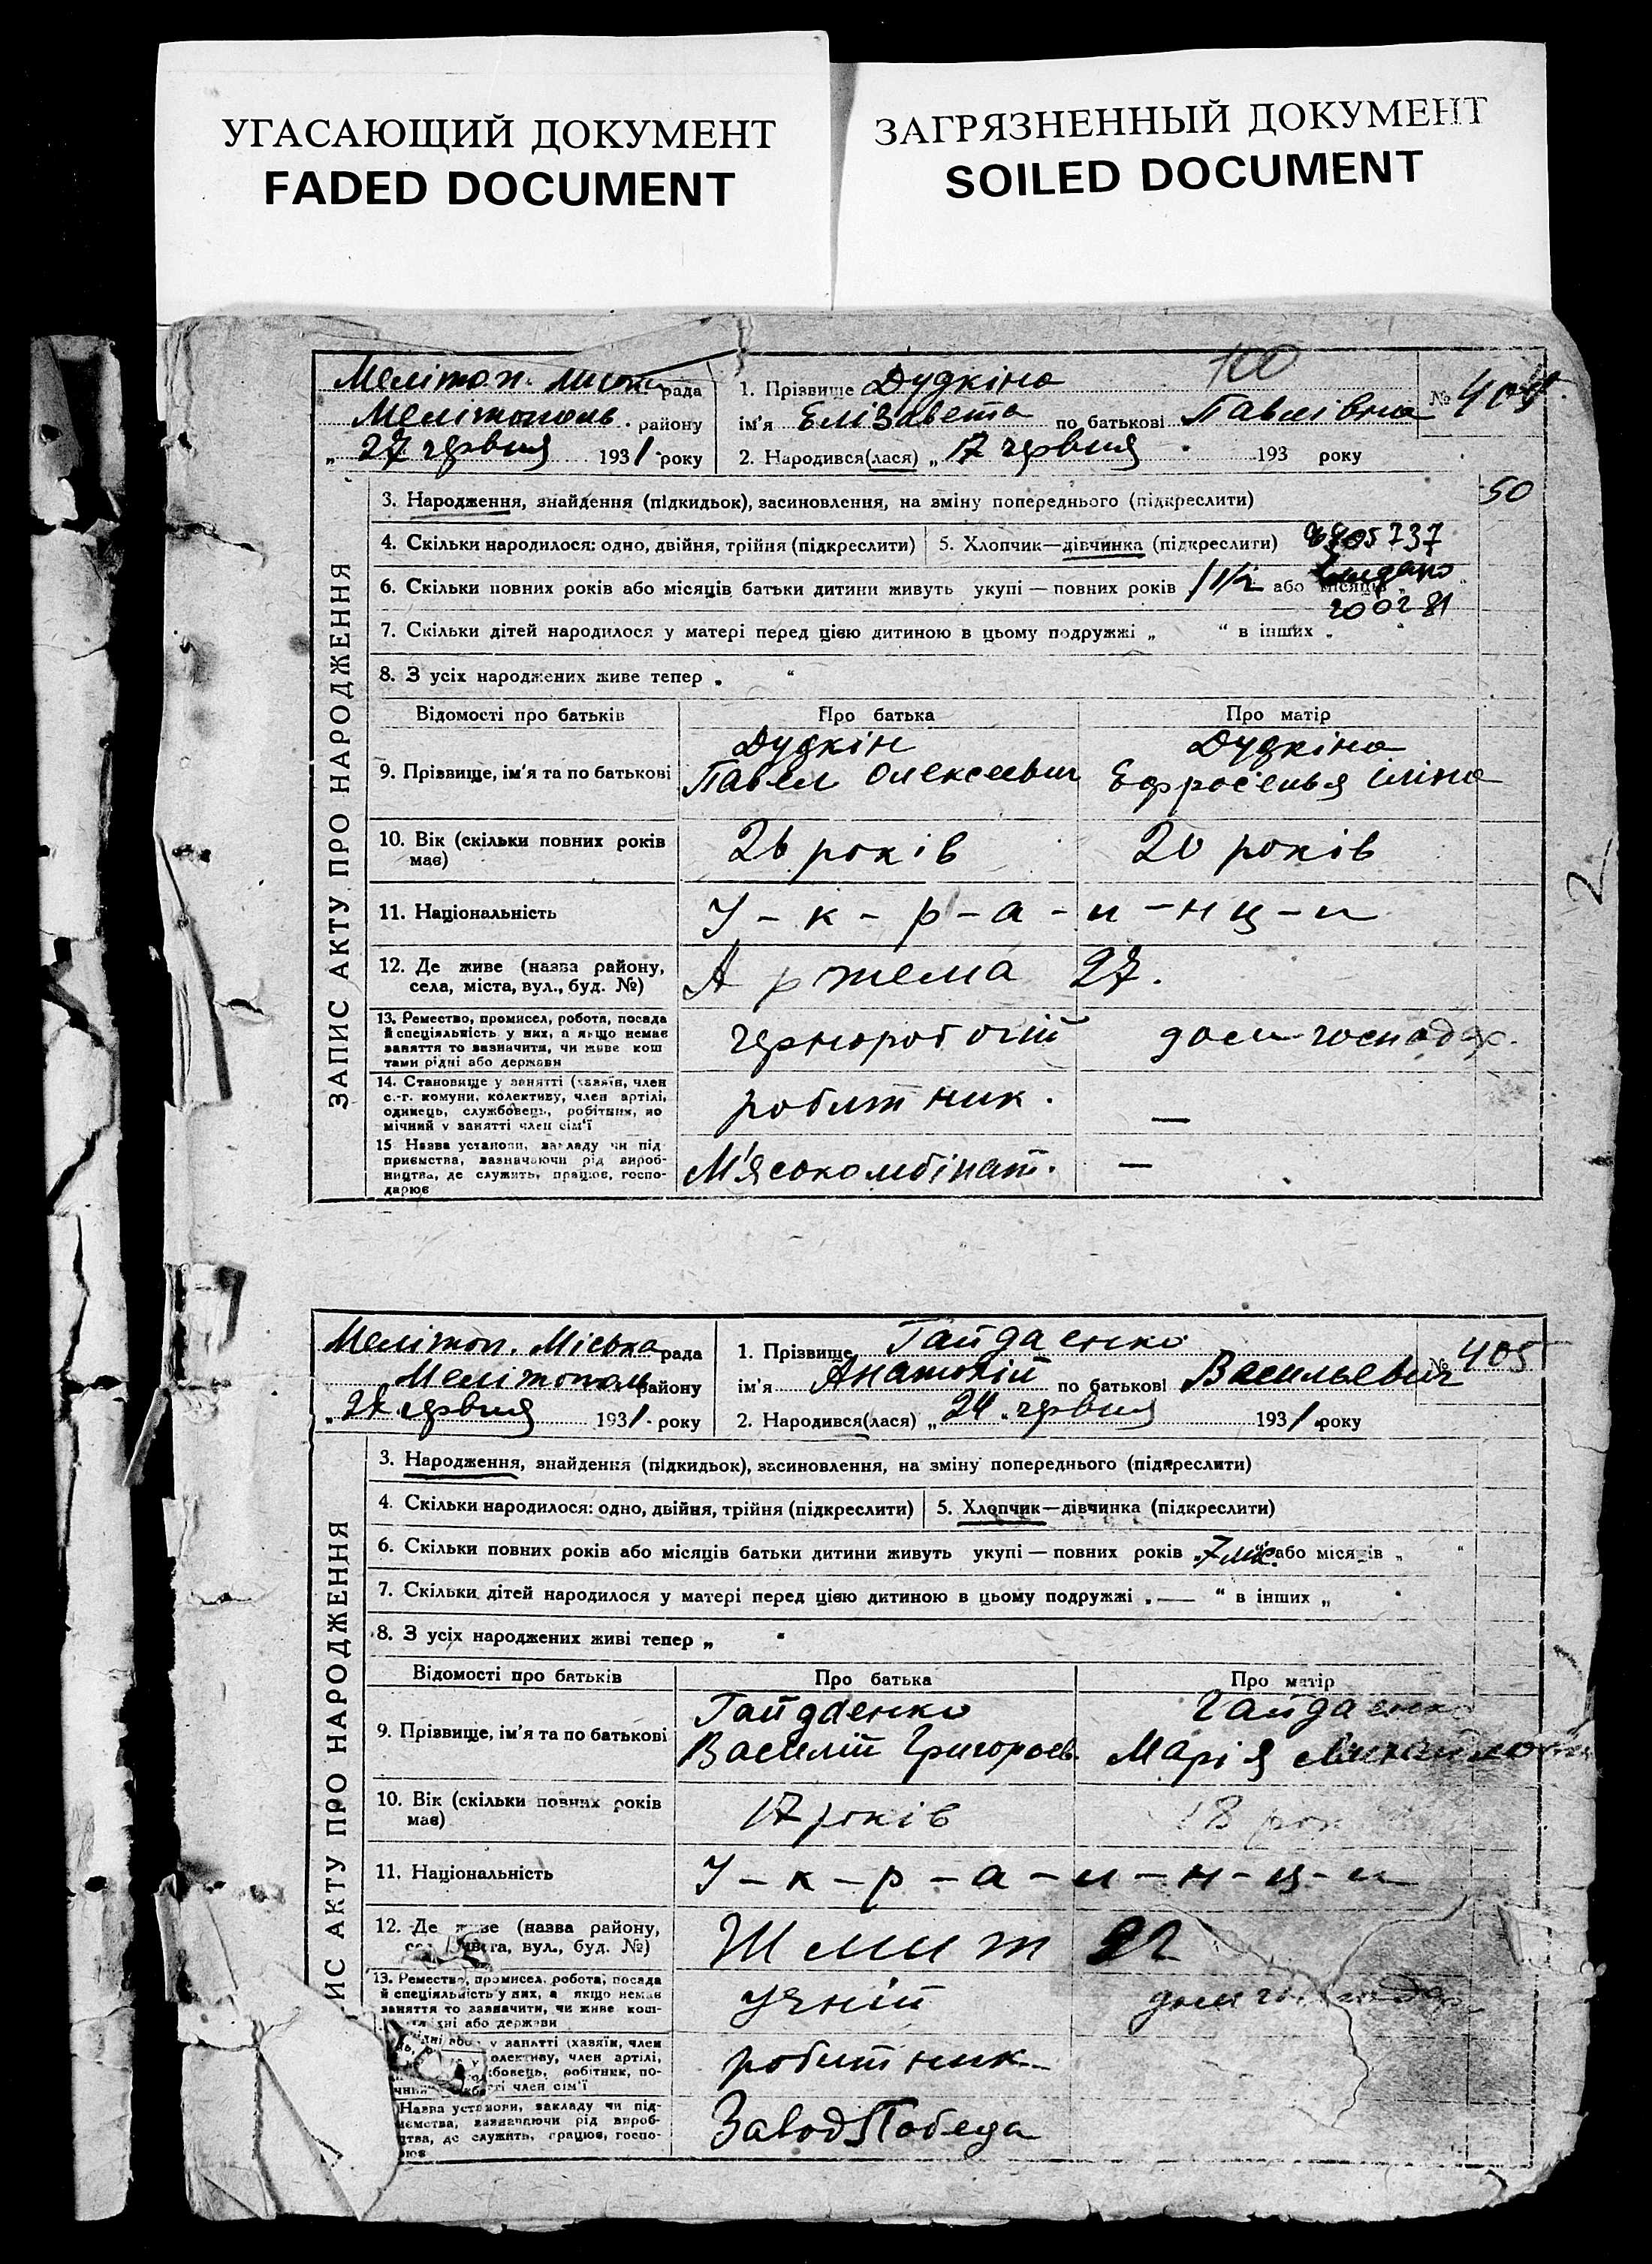 УГАСАЮЩИЙ ДОКУМЕНТ
FADED DOCUMENT
ЗАГРЯЗНЕННЫЙ ДОКУМЕНТ
SOILED DOCUMENT
ЗАПИС АКТУ ПРО НАРОДЖЕННЯ
Меліт​оп. рада
Мелітополь. району
„ 27 червня 1931 року
1. Прізвище Дудкіна
ім'я Елізавета по батькові Павлівна
2. Народився(лася) „ 17 червня 193 року
100
№ 404
3. Народження, знайдення (підкидьок), засиновлення, на зміну попереднього (підкреслити)
50
4. Скільки народилося: одно, двійня, трійня (підкреслити)
5. Хлопчик—дівчинка (підкреслити)
6. Скільки повних років або місяців батьки дитини живуть укупі — повних років 1 1/2 або місяців „ “
20 02 81
7. Скільки дітей народилося у матері перед цією дитиною в цьому подружжі „ “ в інших „ “
8. З усіх народжених живе тепер „ “
Відомості про батьків Про батька Про матір
9. Прізвище, ім'я та по батькові
Дудкін
Павел Олексеевич
Дудкіна
Ефросенья Іліна
10. Вік (скільки повних років має)
26 років 20 років
11. Національність У-к-р-а-и-н-ц-и
12. Де живе (назва району,
села, міста, вул., буд. №)
Артема 27.
13. Ремество, промисел, робота, посада
й спеціяльність у них, а якщо немає
заняття то зазначити, чи живе кош
тами рідні або держави
чернороб очій дом господар.
14. Становище у занятті (хазяїн, член
с.-г. комуни, колективу, член артілі,
одинець, службовець, робітник, по
мічний у занятті член сім'ї
робитник. —
15 Назва установи, закладу чи під
приємства, зазначаючи рід вироб-
ництва, де служить, працює, госпо-
дарює
М'ясокомбінат. —
2
ИС АКТУ ПРО НАРОДЖЕННЯ
Меліт​оп. Міська рада
Мелітополь району
„ 28 червня 1931. року
1. Прізвище Гайдаенко
ім'я Анатолій по батькові Васильевич
2. Народився(лася) „ 24 червня 1931. року
№ 405
3. Народження, знайдення (підкидьок), засиновлення, на зміну попереднього (підкреслити)
4. Скільки народилося: одно, двійня, трійня (підкреслити)
5. Хлопчик—дівчинка (підкреслити)
6. Скільки повних років або місяців батьки дитини живуть укупі — повних років „ 7 міс. або місяців „ “
7. Скільки дітей народилося у матері перед цією дитиною в цьому подружжі „ — “ в інших „ “
8. З усіх народжених живі тепер „ “
Відомості про батьків Про батька Про матір
9. Прізвище, ім'я та по батькові
Гайдаенко
Василій Григорьев.
Гайдаенко
Марія
10. Вік (скільки повних років має)
17 років 18 рок
11. Національність У-к-р-а-и-н-ц-и
12. Де живе (назва району,
міста, вул., буд. №)
Шмит 22
13. Ремество, промисел, робота, посада
й спеціяльність у них, а якщо немає
заняття то зазначити, чи живе кош-
рідні або держави
учній
у занятті (хазяїн, член
колективу, член артілі,
службовець, робітник, по-
член сім'ї
робитник
Назва установи, закладу чи під-
приємства, зазначаючи рід вироб-
ництва, де служить, працює, госпо-
Завод Победа